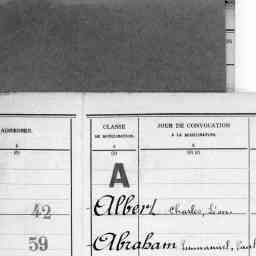 ADRESSES. CLASSE DE MOBILISATION. JOUR DE CONVOCATION A LA MOBILISATION.
4 4 4
A
42 Albert Charles, Léon
59 Abraham Emmanuel,